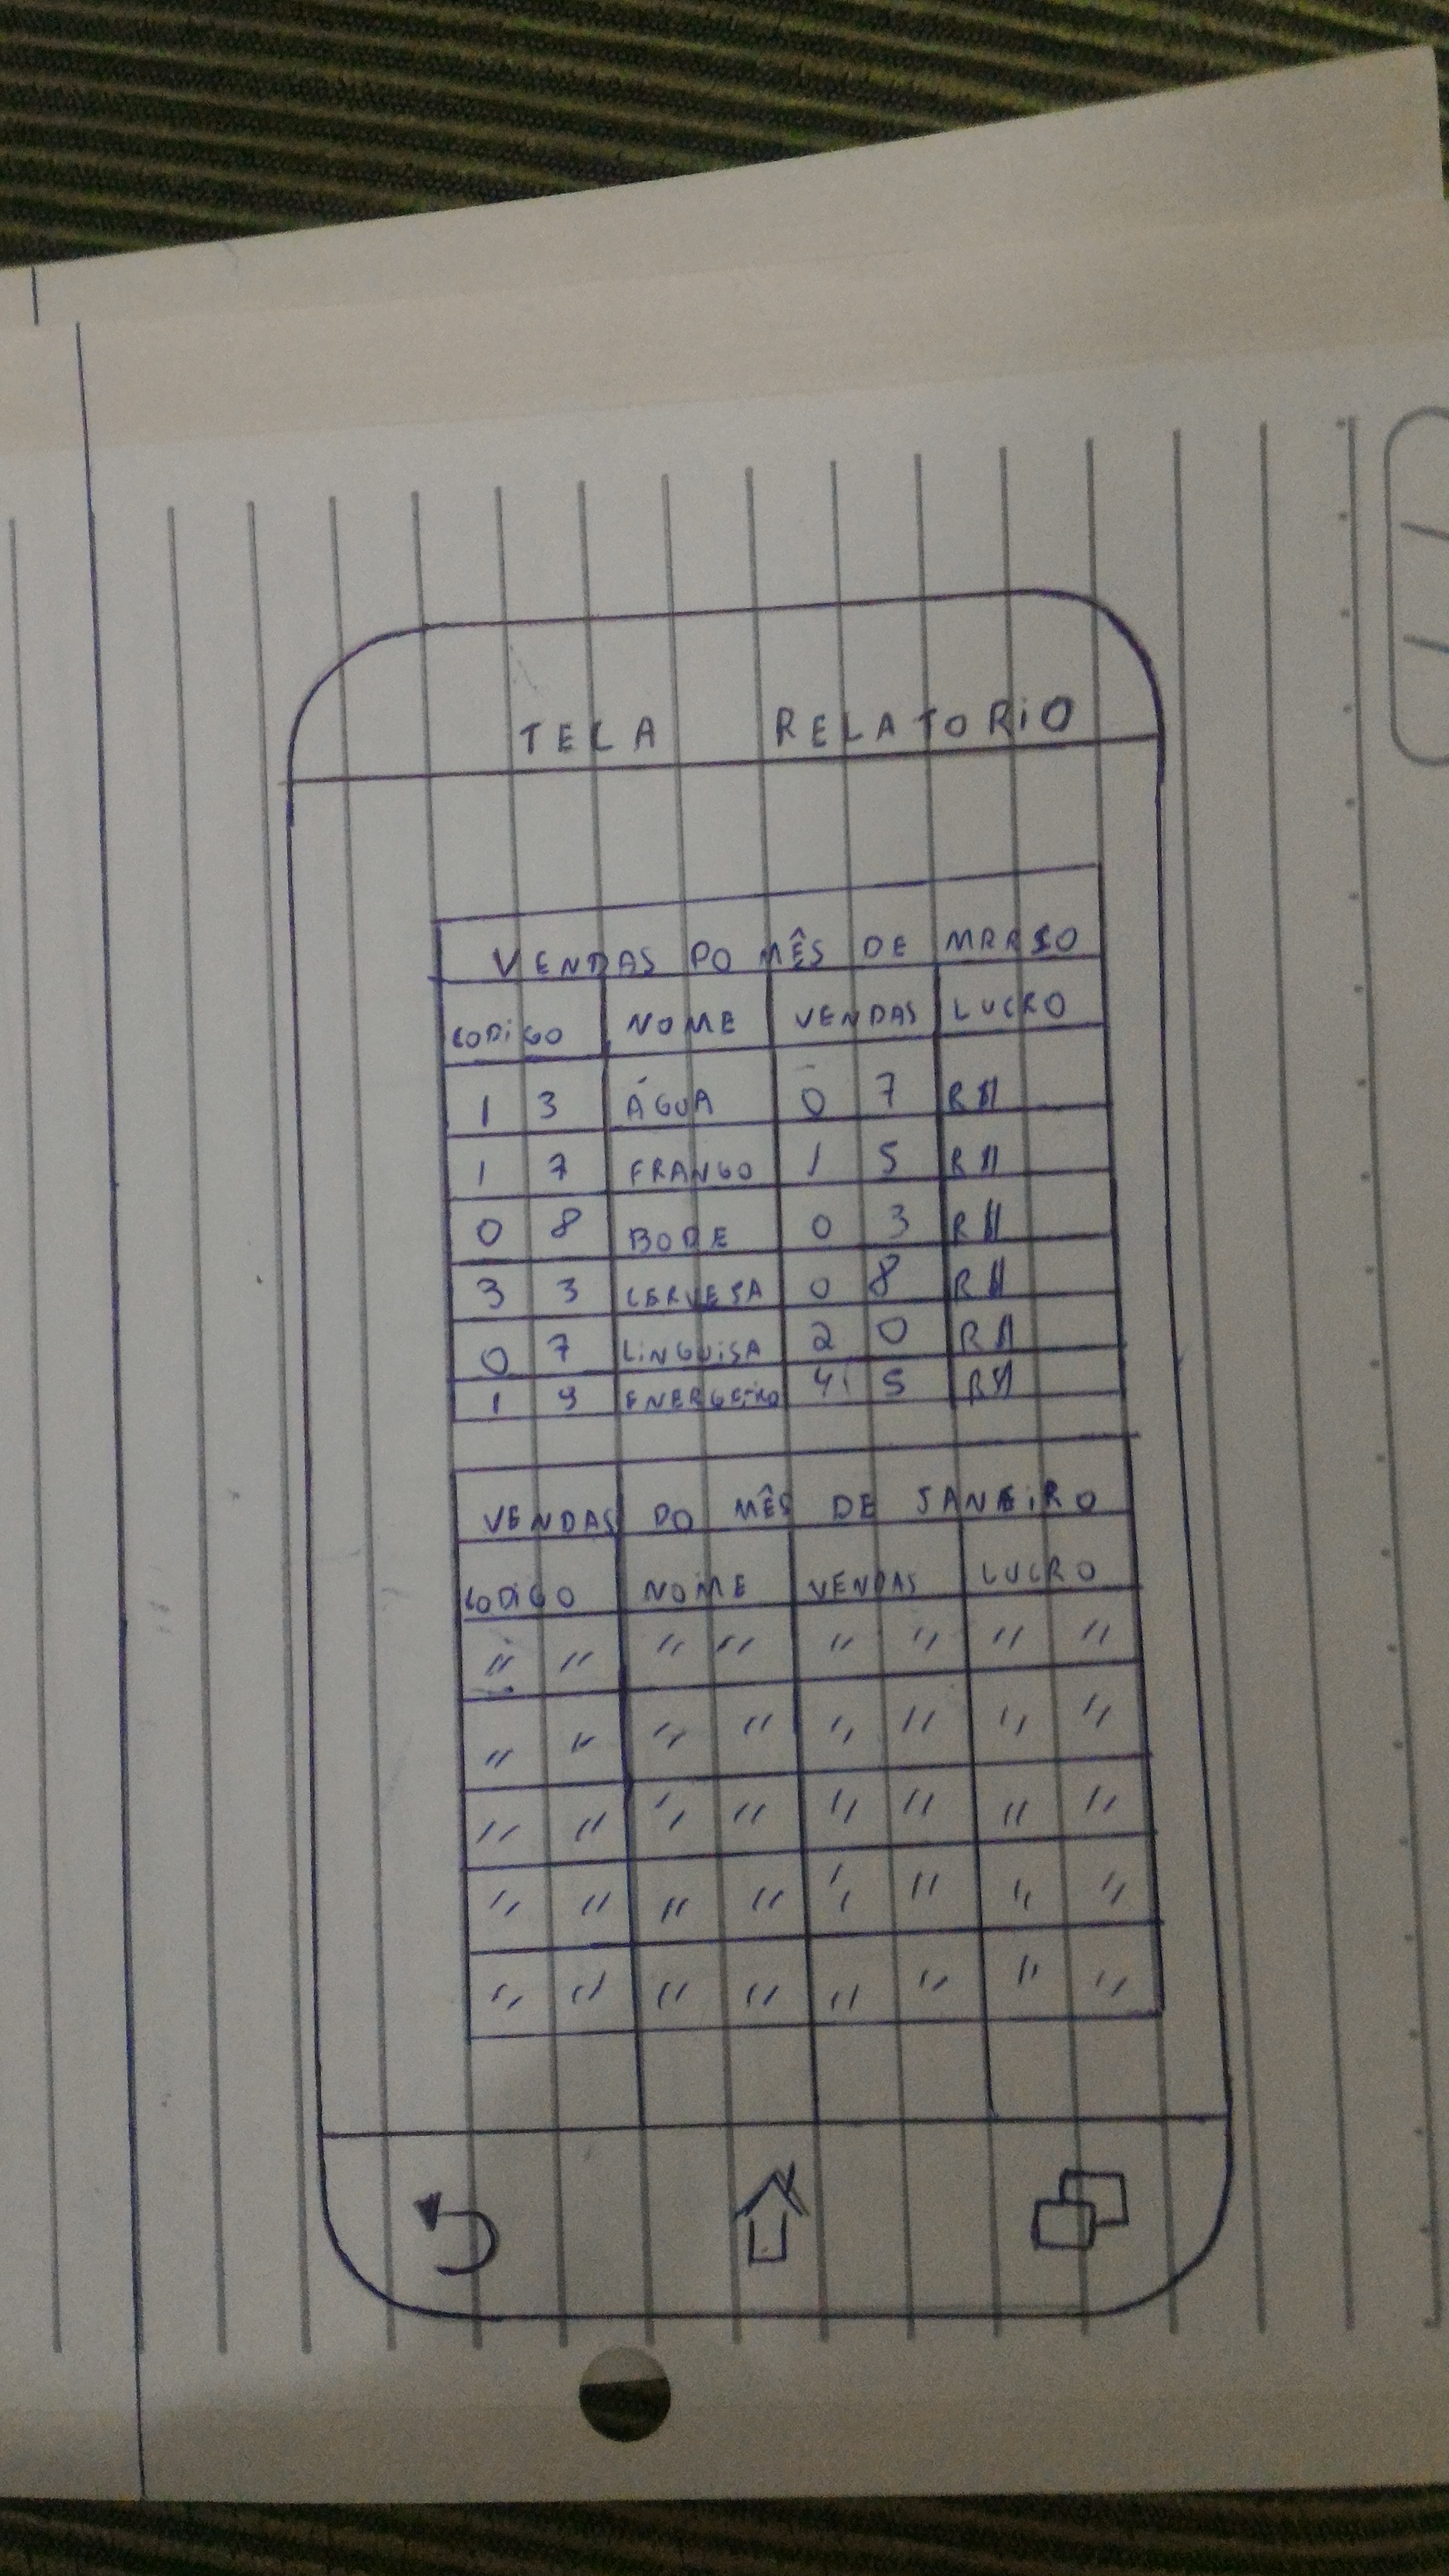 TELA RELATORIO
VENDAS DO MÊS DE MARSO
CODIGO NOME VENDAS LUCRO
13 ÁGUA 07 R$
17 FRANGO 15 R$
08 BODE 03 R$
33 CERVEJA 08 R$
07 LINGUISA 20 R$
19 45 R$
VENDAS DO MÊS DE JANEIRO
CODIGO NOME VENDAS LUCRO
" " " " " " " "
" " " " " " " "
" " " " " " " "
" " " " " " " "
" " " " " " " "